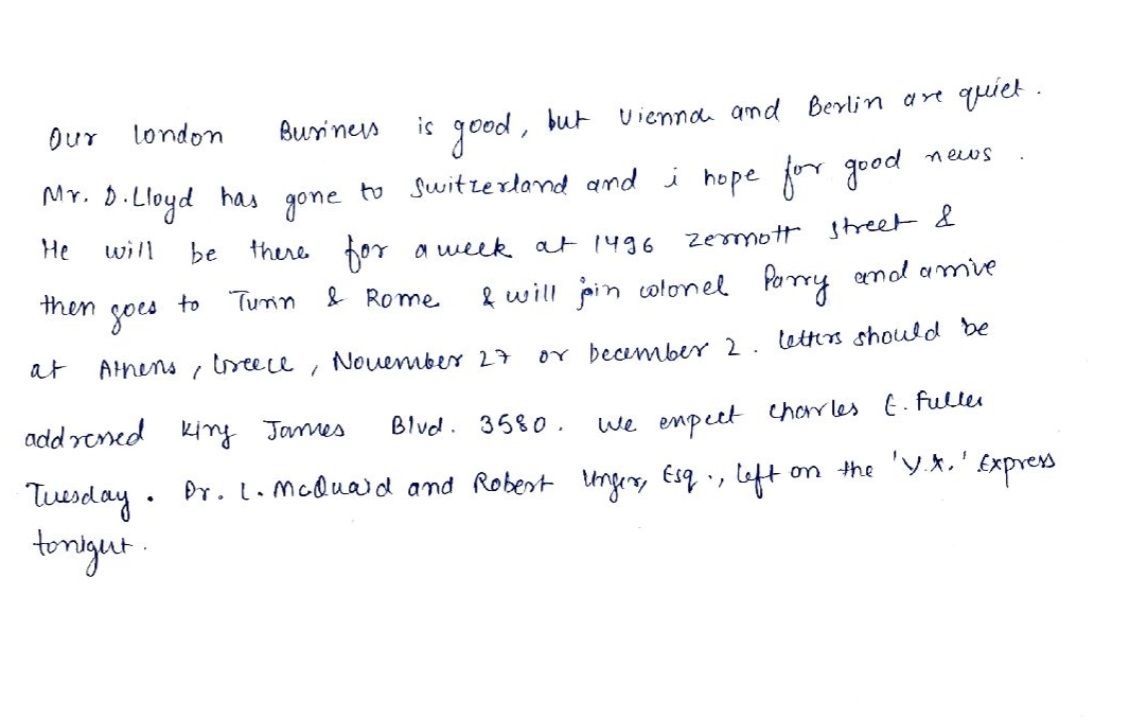 Our london Business is good, but Vienna and Berlin are quiet.
Mr. D. Lloyd has gone to Switzerland and i hope for good news.
He will be there for a week at 1496 zermott street &
then goes to Turin & Rome & will join colonel Parry and arrive
at Athens, Greece, November 27 or December 2. letters should be
addressed King James Blvd. 3580. We expect Charles E. Fuller
Tuesday. Dr. L. McQuaid and Robert Unger, Esq., left on the 'Y.X.' Express
tonight.